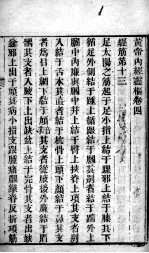 黃帝內經靈樞卷四
經筋第十三
足太陽之筋起于足小指上結于踝邪上結于膝其下
循足外側結于踵上循跟結于膕其別者結于踹外上
膕中內廉與膕中并上結于臀上挾脊上項其支者別
入結于舌本其直者結于枕骨上頭下顏結于鼻其支
者為目上網下結于頄其支者從腋後外廉結于肩髃
其支者入腋下上出缺盆上結于完骨其支者出缺
盆邪上出于頄其病小指支跟腫痛膕攣脊反折項筋